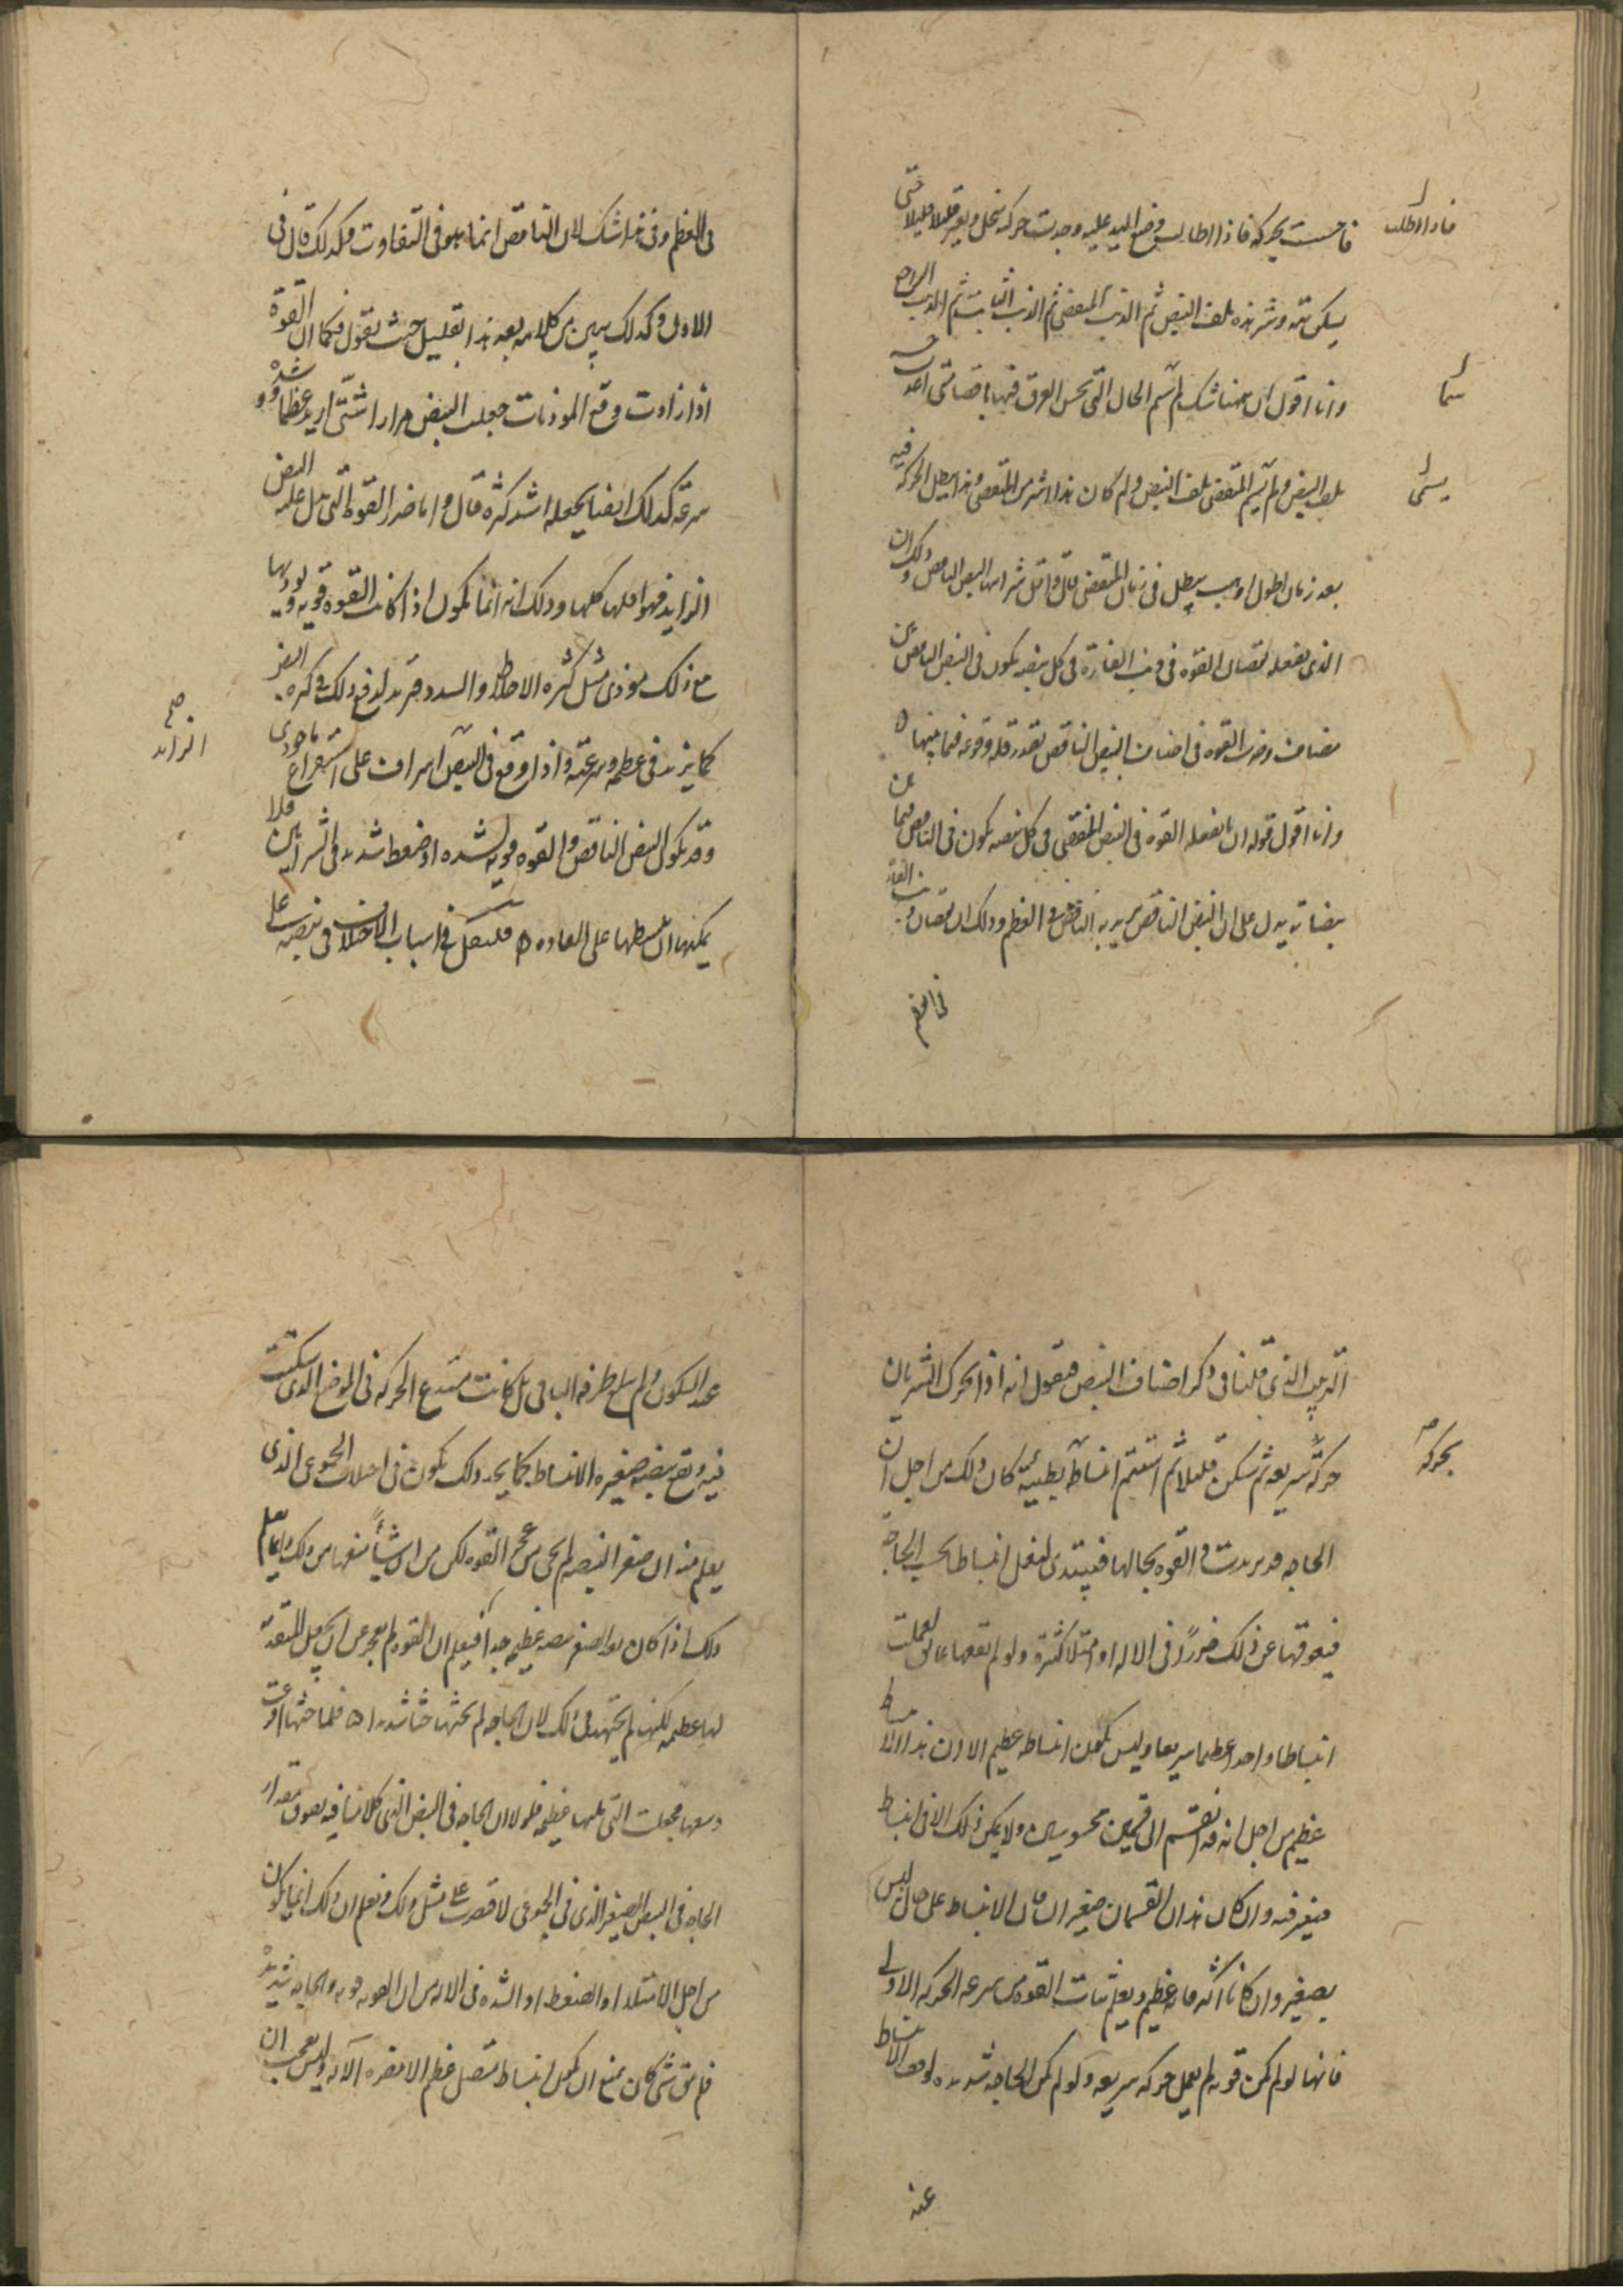 فاحست بحركة فاذا اطال وضع اليد عليه وجدت حركه تنحل ويفتر قليلا قليلا حتى
فاذا اطلت
يسكن ثمه وشر هذه تلف النبض ثم الذنب المنقضي ثم الذنب الثابت ثم الذنب الراجع
وانا اقول ان ههنا شك لم اسم الحال التي يحس العرق فيها
سما
تلف النبض ولم يسم المنقضي تلف النبض ولم كان هذا اشر من المنقضي وهذا يبطل الحركه فيه
يسمى
بعد زمان اطول او يبطل في زمان المنقضي قال واقل شراسها النبض الناقص وذلك ان
الذي يفعله نقصان القوه في ذنب الفارة في كل نبضه يكون في النبض الناقص في
نبضات وضرب القوه في اصناف النبض الناقص بقدر قله وقوعه فيما بينها ه
وانا اقول قوله ان ما يفعله القوه في النبض المنقضي في كل نبضه يكون في الناقص فيما بين
نبضاته يدل على ان النبض الناقص يريد به الناقص في العظم وذلك ان نقصان ذنب الفار
في العظم وفي هذا شك لان الناقص انما هو في التفاوت وكذلك قال في
الاول وكذلك يبين من كلامه بعد هذا بقليل حيث يقول فكما ان القوة
اذا ارادت دفع الموذيات جعلت النبض مرارا شتى ازيد عظما وشده و
سرعه كذلك ايضا يجعله اشد كثره قال واما ضرر القوه التي تدل عليه النبض
الزايد فهو اقلها كلها وذلك انه انما يكون اذا كانت القوه قويه ويوذيها
مع ذلك موذي مثل كثره الاخلاط والسدد فتريد لدفع ذلك في كثره النبض
كما يزيد في عظمه وسرعته واذا وقع في النبض اسراف على استفراغ ما يوذي
الزايد صح
وقد يكون النبض الناقص والقوه قويه لشده او ضغط شديد في الشرايين فلا
يمكنها ان تبسطها على العاده ه فلنقل في اسباب الاختلاف في نبضه على
الترتيب الذي قلنا في ذكر اصناف النبض فنقول انه اذا تحرك الشريان
حركة سريعه ثم سكن قليلا ثم استتم انبساطه بطيئه كان ذلك من اجل ان
بحركه
الحاجه قد تزيدت والقوه بحالها فيبتدي لتفعل انبساطا بحسب الحاجه
فيعوقها عن ذلك ضرر في الاله او امتلا كثرة ولو لم يعقها عائق لعملت
انبساطا واحدا عظيما سريعا وليس يكون انبساطه عظيم الا ان هذا الانبساط
عظيم من اجل انه قد انقسم الى قسمين محسوسين ولا يمكن ذلك الا في انبساط
وان كان هذان القسمان صغيران فان الانبساط على حال ليس
بصغير وان كانا اكثر فانه عظيم ويعلم ثبات القوه من سرعه الحركه الاولى
فانها لو لم تكن قويه لم تعمل حركه سريعه ولو لم تكن الحاجه شديده لوقف الانبساط
عند
عند السكون ولم يبلغ طرفه الباقي بل كانت تبتدي الحركه في الموضع الذي سكنت
فيه ويقع نبضه صغيره الانبساط كما يجد ذلك يكون في اختلاف الحمى الذي
يعلم منه ان صغر النبضه لم يجي من عجز القوه لكن من ان شيأ منعها من ذلك وانما يتم
ذلك اذا كان بعد الصغير نبضه عظيمه جدا فيعلم ان القوه لم تعجز عن ان تجعل المتقدمه
لها عظيمه لكنها لم تجتهد في ذلك لان الحاجه لم تحثها حثا شديدا ه فلما حثها افرغت
وسعها فجعلت التي تليها عظيمه فلولا ان الحاجه في النبض الذي كلامنا فيه يفوق مقدار
الحاجه في النبض الصغير الذي في الحمى لاقتصرت على مثل ذلك ونعلم ان ذلك انما يكون
من اجل الامتلاء او الضغط او الشده في الاله من ان القوه قويه والحاجه شديدة
فلم يبق شي كان يمنع ان يكون انبساط متصل عظيم الا مضره الآله وليس يعجب ان